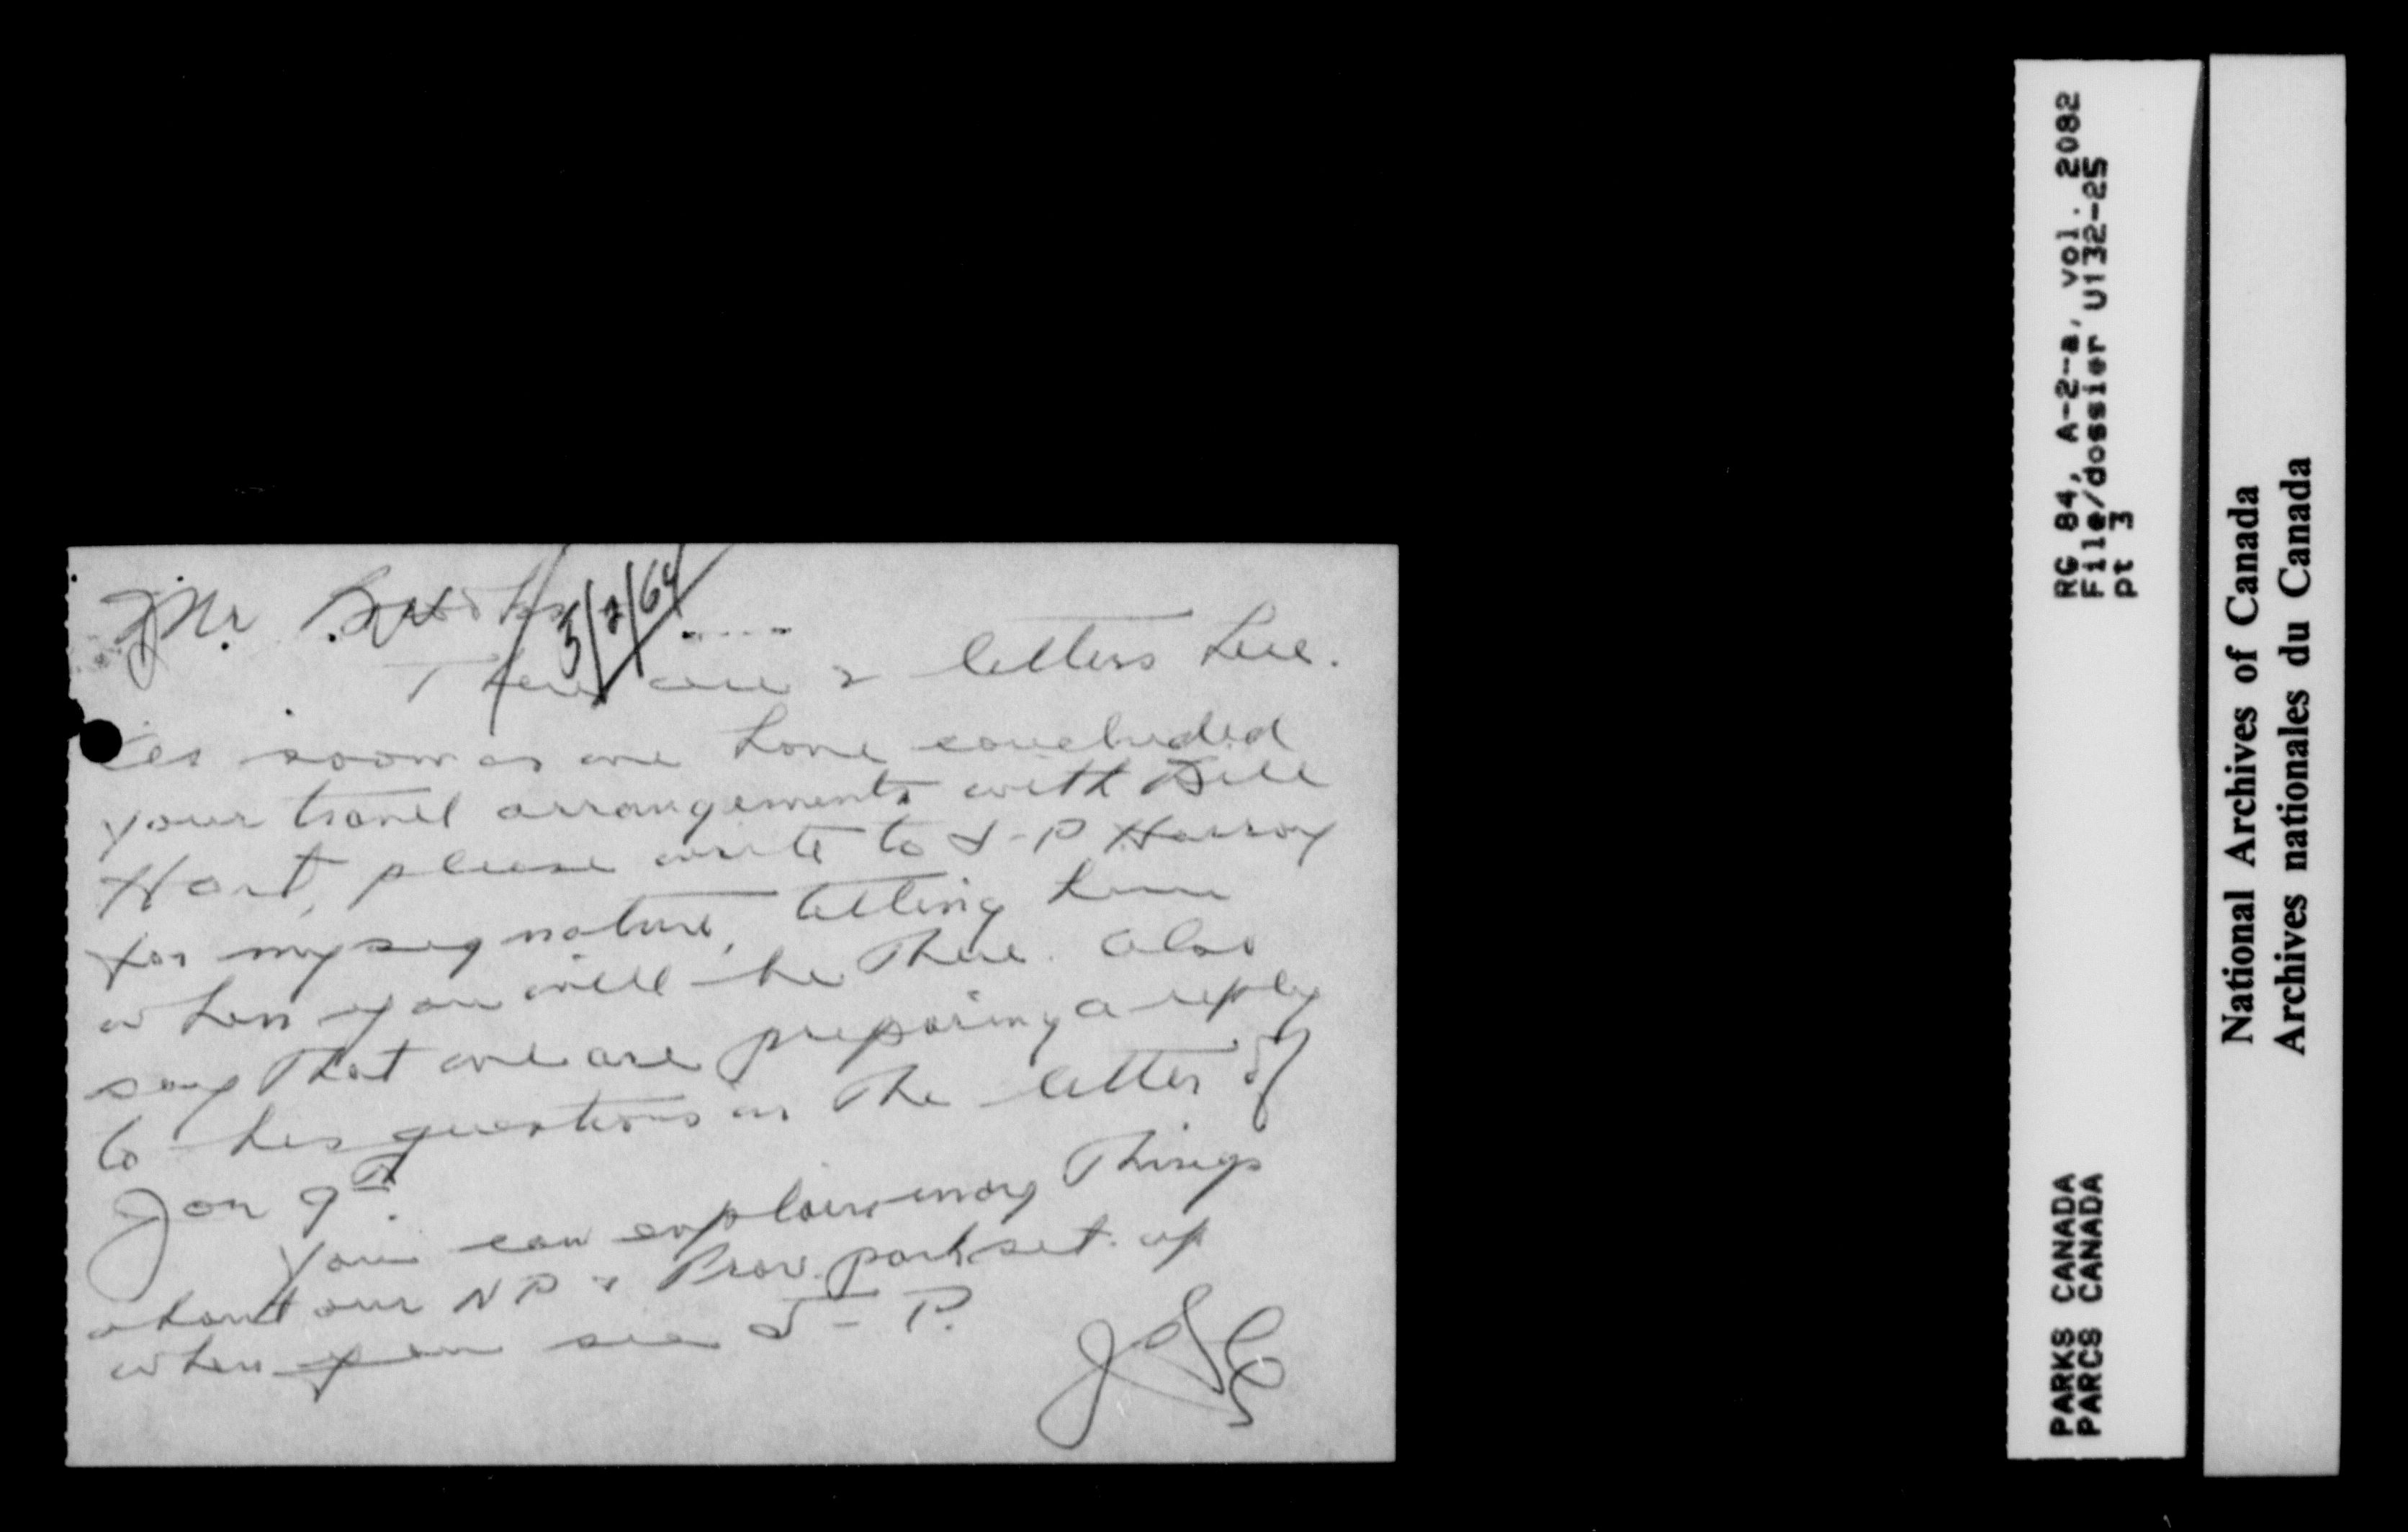 Mr.
5/2/64
There are 2 letters here.
As soon as we have concluded
your travel arrangements with Bill
Hart, please write to J-P Harroy
for my signature, telling him
when you will be there. Also
say that we are preparing a reply
to his questions in the letter of
Jan 9th.
You can explain many things
about our NP & Prov. park set-up
when you see J-P.
RG 84, A-2-a, vol. 2082
File/dossier U132-25
pt 3
PARKS CANADA
PARCS CANADA
National Archives of Canada
Archives nationales du Canada